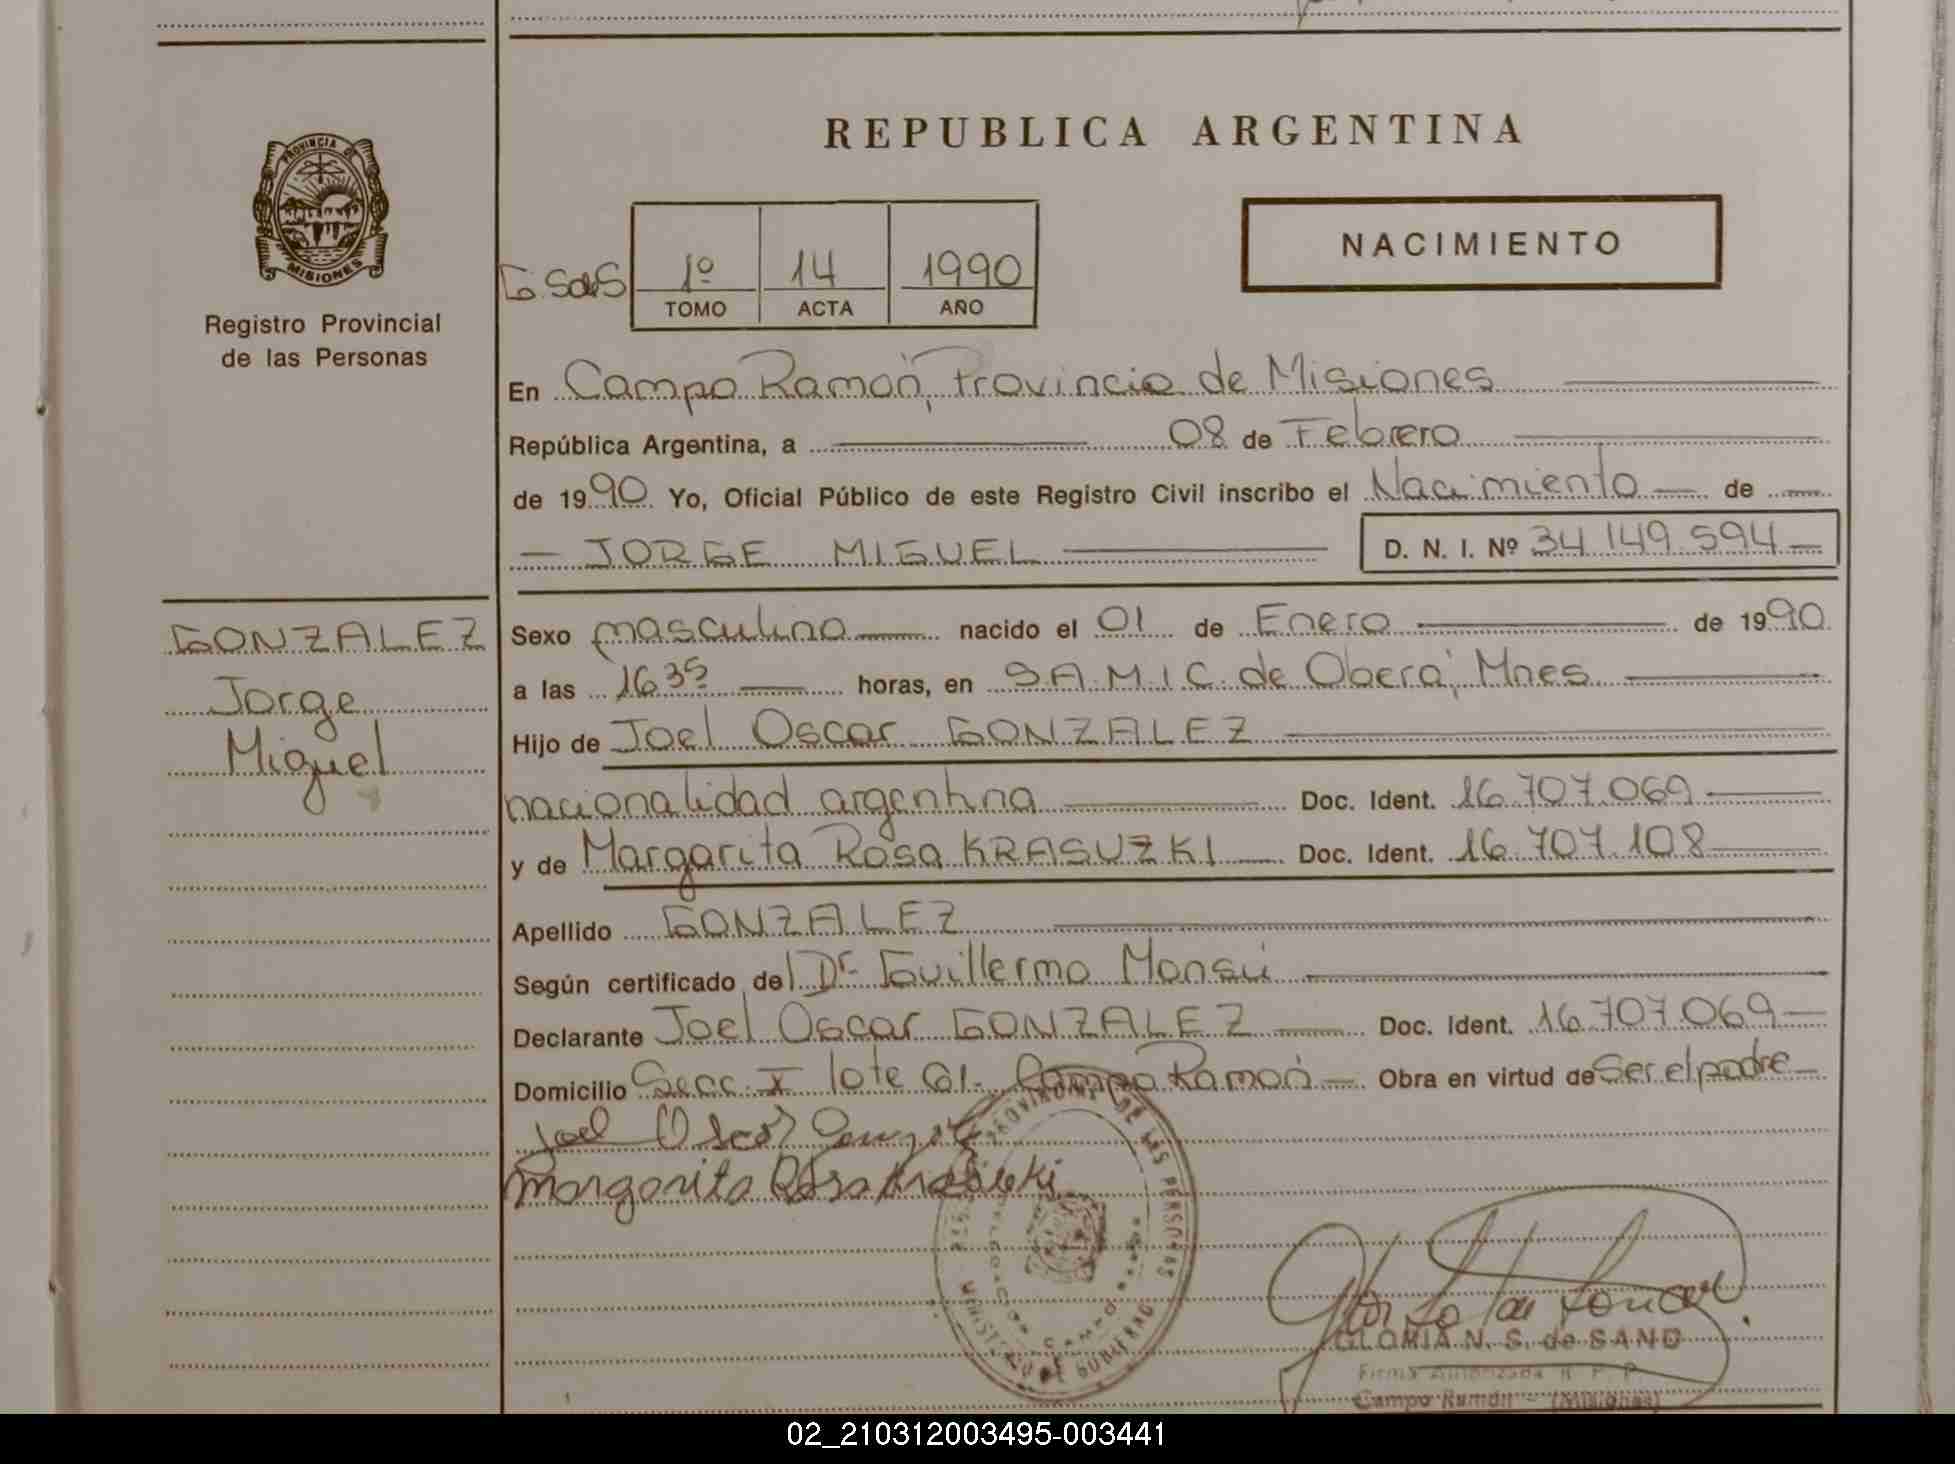 REPUBLICA ARGENTINA
PROVINCIA DE
MISIONES
Registro Provincial
de las Personas
1º 14 1990
TOMO ACTA AÑO
NACIMIENTO
En Campo Ramón, Provincia de Misiones
República Argentina, a 08 de Febrero
de 1990 Yo, Oficial Público de este Registro Civil inscribo el Nacimiento de
JORGE MIGUEL D. N. I. Nº 34.149.594
GONZALEZ
Jorge
Miguel
Sexo masculino nacido el 01 de Enero de 1990
a las 16 35 horas, en S.A.M.I.C. de Oberá, Mnes
Hijo de Joel Oscar GONZALEZ
nacionalidad argentina Doc. Ident. 16.707.069
y de Margarita Rosa KRASUZKI Doc. Ident. 16.707.108
Apellido GONZALEZ
Según certificado del Dr. Guillermo Monsú
Declarante Joel Oscar GONZALEZ Doc. Ident. 16.707.069
Domicilio Secc. X lote 61. Campo Ramón Obra en virtud de Ser el padre
Joel Oscar
Margarita Rosa
GLORIA N. S. de SAND
Firma Autorizada R. P. P.
Campo Ramón - (Misiones)
02_210312003495-003441